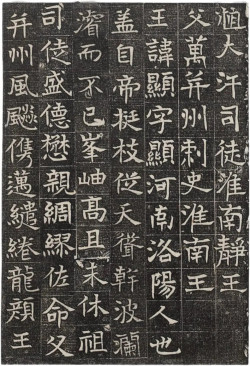 大汗司徒淮南靜王
父萬并州刺史淮南王
王諱顯字顯河南洛陽人也
蓋自帝挺枝從天聳幹波瀾
濬而不已峯岫高且未休祖
司徒盛德懋親綢繆佐命父
并州風飈儁邁繾綣龍顏王